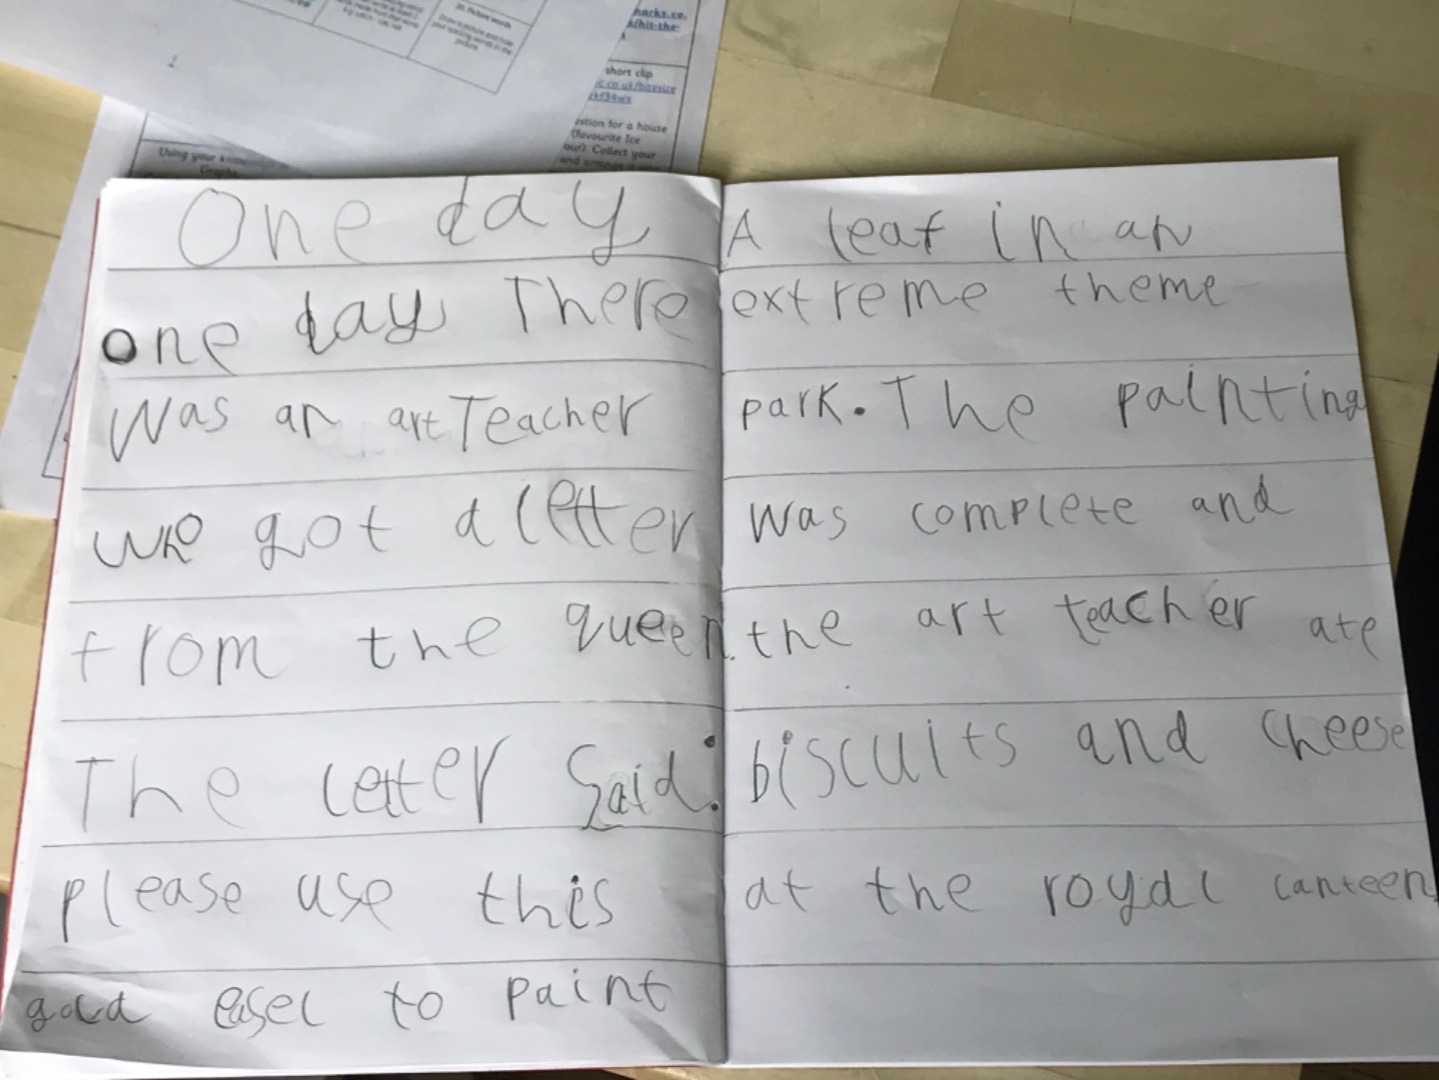 30. Picture words
Draw a picture and hide
your spelling words in the
picture
harks.co.
/hit-the-
short clip
c.co.uk/bitesize
estion for a house
(favourite Ice
our). Collect your
Using your
Graphs
One day
one day There
Was an art Teacher
who got a letter
from the queen.
The letter Said:
please use this
gold easel to paint
A leaf in an
extreme theme
park. The painting
was complete and
the art teacher ate
biscuits and cheese
at the royal canteen